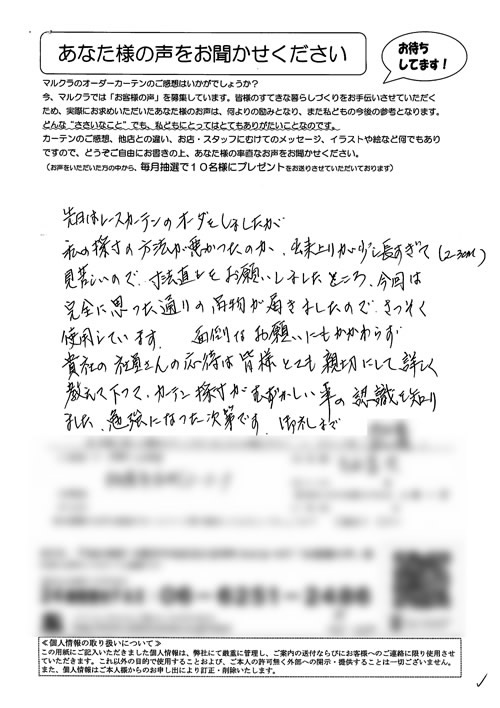 あなた様の声をお聞かせください
お待ち
してます!
マルクラのオーダーカーテンのご感想はいかがでしょうか?
今、マルクラでは「お客様の声」を募集しています。皆様のすてきな暮らしづくりをお手伝いさせていただく
ため、実際にお求めいただいたあなた様のお声は、何よりの励みとなり、また私どもの今後の参考となります。
どんな"ささいなこと"でも、私どもにとってはとてもありがたいことなのです。
カーテンのご感想、他店との違い、お店・スタッフにむけてのメッセージ、イラストや絵など何でもあり
ですので、どうぞご自由にお書きの上、あなた様の率直なお声をお聞かせください。
(お声をいただいた方の中から、毎月抽選で10名様にプレゼントをお送りさせていただいております)
先日はレースカーテンのオーダをしましたが
私の採寸の方法が悪かったのか、出来上りが少し長すぎて(2-3cm)
見苦しいので、寸法直しをお願いしましたところ、今回は
完全に思った通りの品物が届きましたので、さっそく
使用しています。 面倒なお願いにもかかわらず
貴社の社員さんの応待は皆様とても親切にして詳しく
教えて下さって、カーテン採寸がむずかしい事の認識を知り
ました、勉強になった次第です。御礼まで
06-6251-2486
≪個人情報の取り扱いについて≫
この用紙にご記入いただきました個人情報は、弊社にて厳重に管理し、ご案内の送付ならびにお客様へのご連絡に限り使用させ
ていただきます。これ以外の目的で使用することおよび、ご本人の許可無く外部への開示・提供することは一切ございません。
また、個人情報はご本人様からのお申し出により訂正・削除いたします。